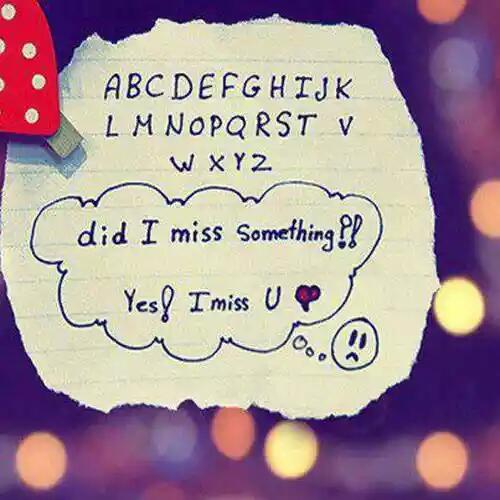 ABCDEFGHIJK
LMNOPQRST V
WXYZ
did I miss something!!
Yes! I miss U